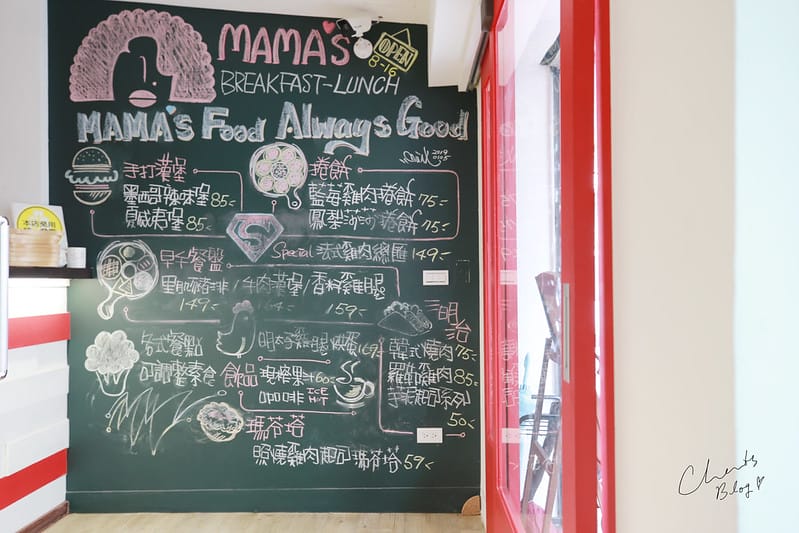 MAMA's
OPEN
8-16
BREAKFAST-LUNCH
MAMA's Food Always Good
2019
0105
手打漢堡
墨西哥辣味堡 85
夏威夷堡 85
捲餅
藍莓雞肉捲餅 75
鳳梨莎莎捲餅 75
S
Special 法式雞肉總匯 149
早午餐盤
里肌豬排 / 牛肉漢堡 / 香料雞腿
149 159
三明治
各式餐點
可調整素食
明太子雞腿烘蛋 169
飲品 現榨果汁 60
咖啡 ICE
HOT
韓式燒肉 75
羅勒雞肉 85
50
瑪芬塔
照燒雞肉起司瑪芬塔 59
本店使用
Chent's
Blog